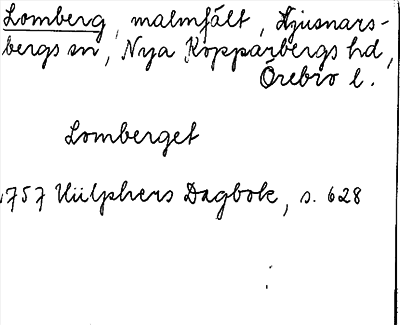 Lomberg, malmfält, Ljusnars-
bergs sn, Nya Kopparbergs hd,
Örebro l.
Lomberget
1757 Hülphers Dagbok, s. 628